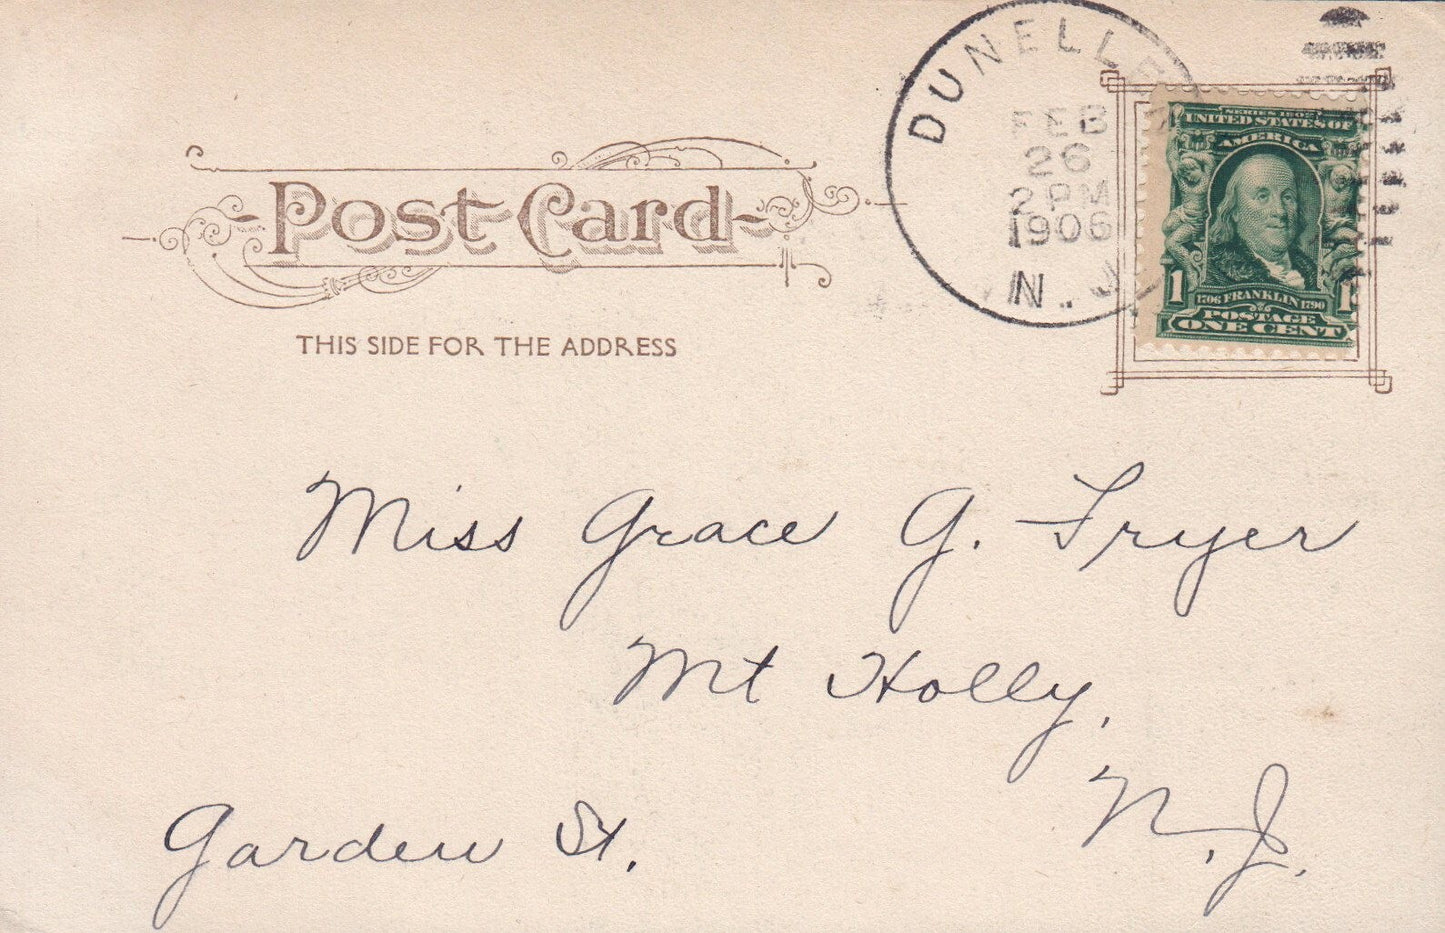 DUNELLEN
FEB
26
2 PM
1906
N. J.
SERIES 1902
UNITED STATES OF
AMERICA
1 1
1706 FRANKLIN 1790
POSTAGE
ONE CENT
Post Card
THIS SIDE FOR THE ADDRESS
Miss Grace G. Fryer
Mt Holly,
N. J.
Garden St.